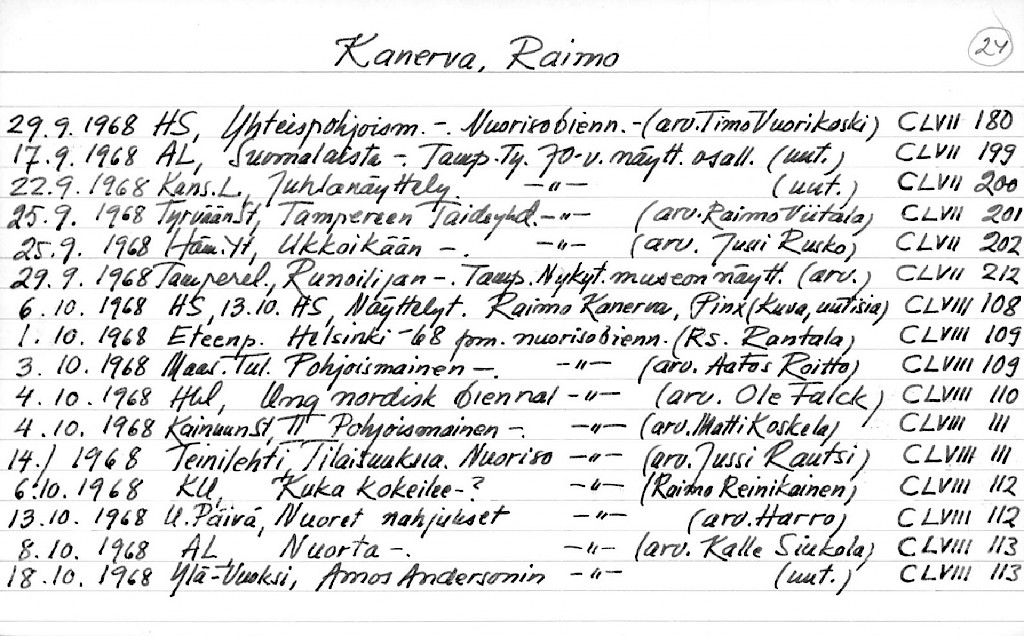 Kanerva, Raimo
24
29.9.1968 HS, Yhteispohjoism. -. Nuorisobienn. - (arv. Timo Vuorikoski) CLVII 180
17.9.1968 AL, Suomalaista -. Tamp. Ty. 70-v. näytt. osall. (uut.) CLVII 199
22.9.1968 Kans.L., Juhlanäyttely -"- (uut.) CLVII 200
25.9. 1968 TyrväänSt, Tampereen Taideyhd. -"- (arv. Raimo Viitala) CLVII 201
25.9. 1968 Häm.Yt, Ukkoikään -. -"- (arv. Jussi Rusko) CLVII 202
29.9.1968 Tamperel., Runoilijan -. Tamp. Nykyt. museon näytt. (arv.) CLVII 212
6.10.1968 HS, 13.10. HS, Näyttelyt. Raimo Kanerva, Pinx (kuva, uutisia) CLVIII 108
1.10.1968 Eteenp. Helsinki -68 pm. nuorisobienn. (Rs. Rantala) CLVIII 109
3.10.1968 Maas. Tul. Pohjoismainen -. -"- (arv. Aatos Roitto) CLVIII 109
4.10.1968 Hbl, Ung nordisk biennal -"- (arv. Ole Falck) CLVIII 110
4.10.1968 KainuunSt, Pohjoismainen -. -"- (arv. Matti Koskela) CLVIII 111
14./ 1968 Teinilehti, Tilaisuuksia. Nuoriso -"- (arv. Jussi Rautsi) CLVIII 111
6.10.1968 KU, Kuka kokeilee-? -"- (Raimo Reinikainen) CLVIII 112
13.10.1968 U.Päivä, Nuoret nahjukset -"- (arv. Harro) CLVIII 112
8.10.1968 AL Nuorta -. -"- (arv. Kalle Siukola) CLVIII 113
18.10.1968 Ylä-Vuoksi, Amos Andersonin -"- (uut.) CLVIII 113